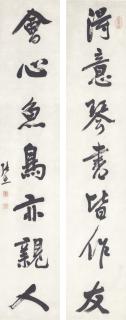 得意琴書皆作友
會心魚鳥亦親人